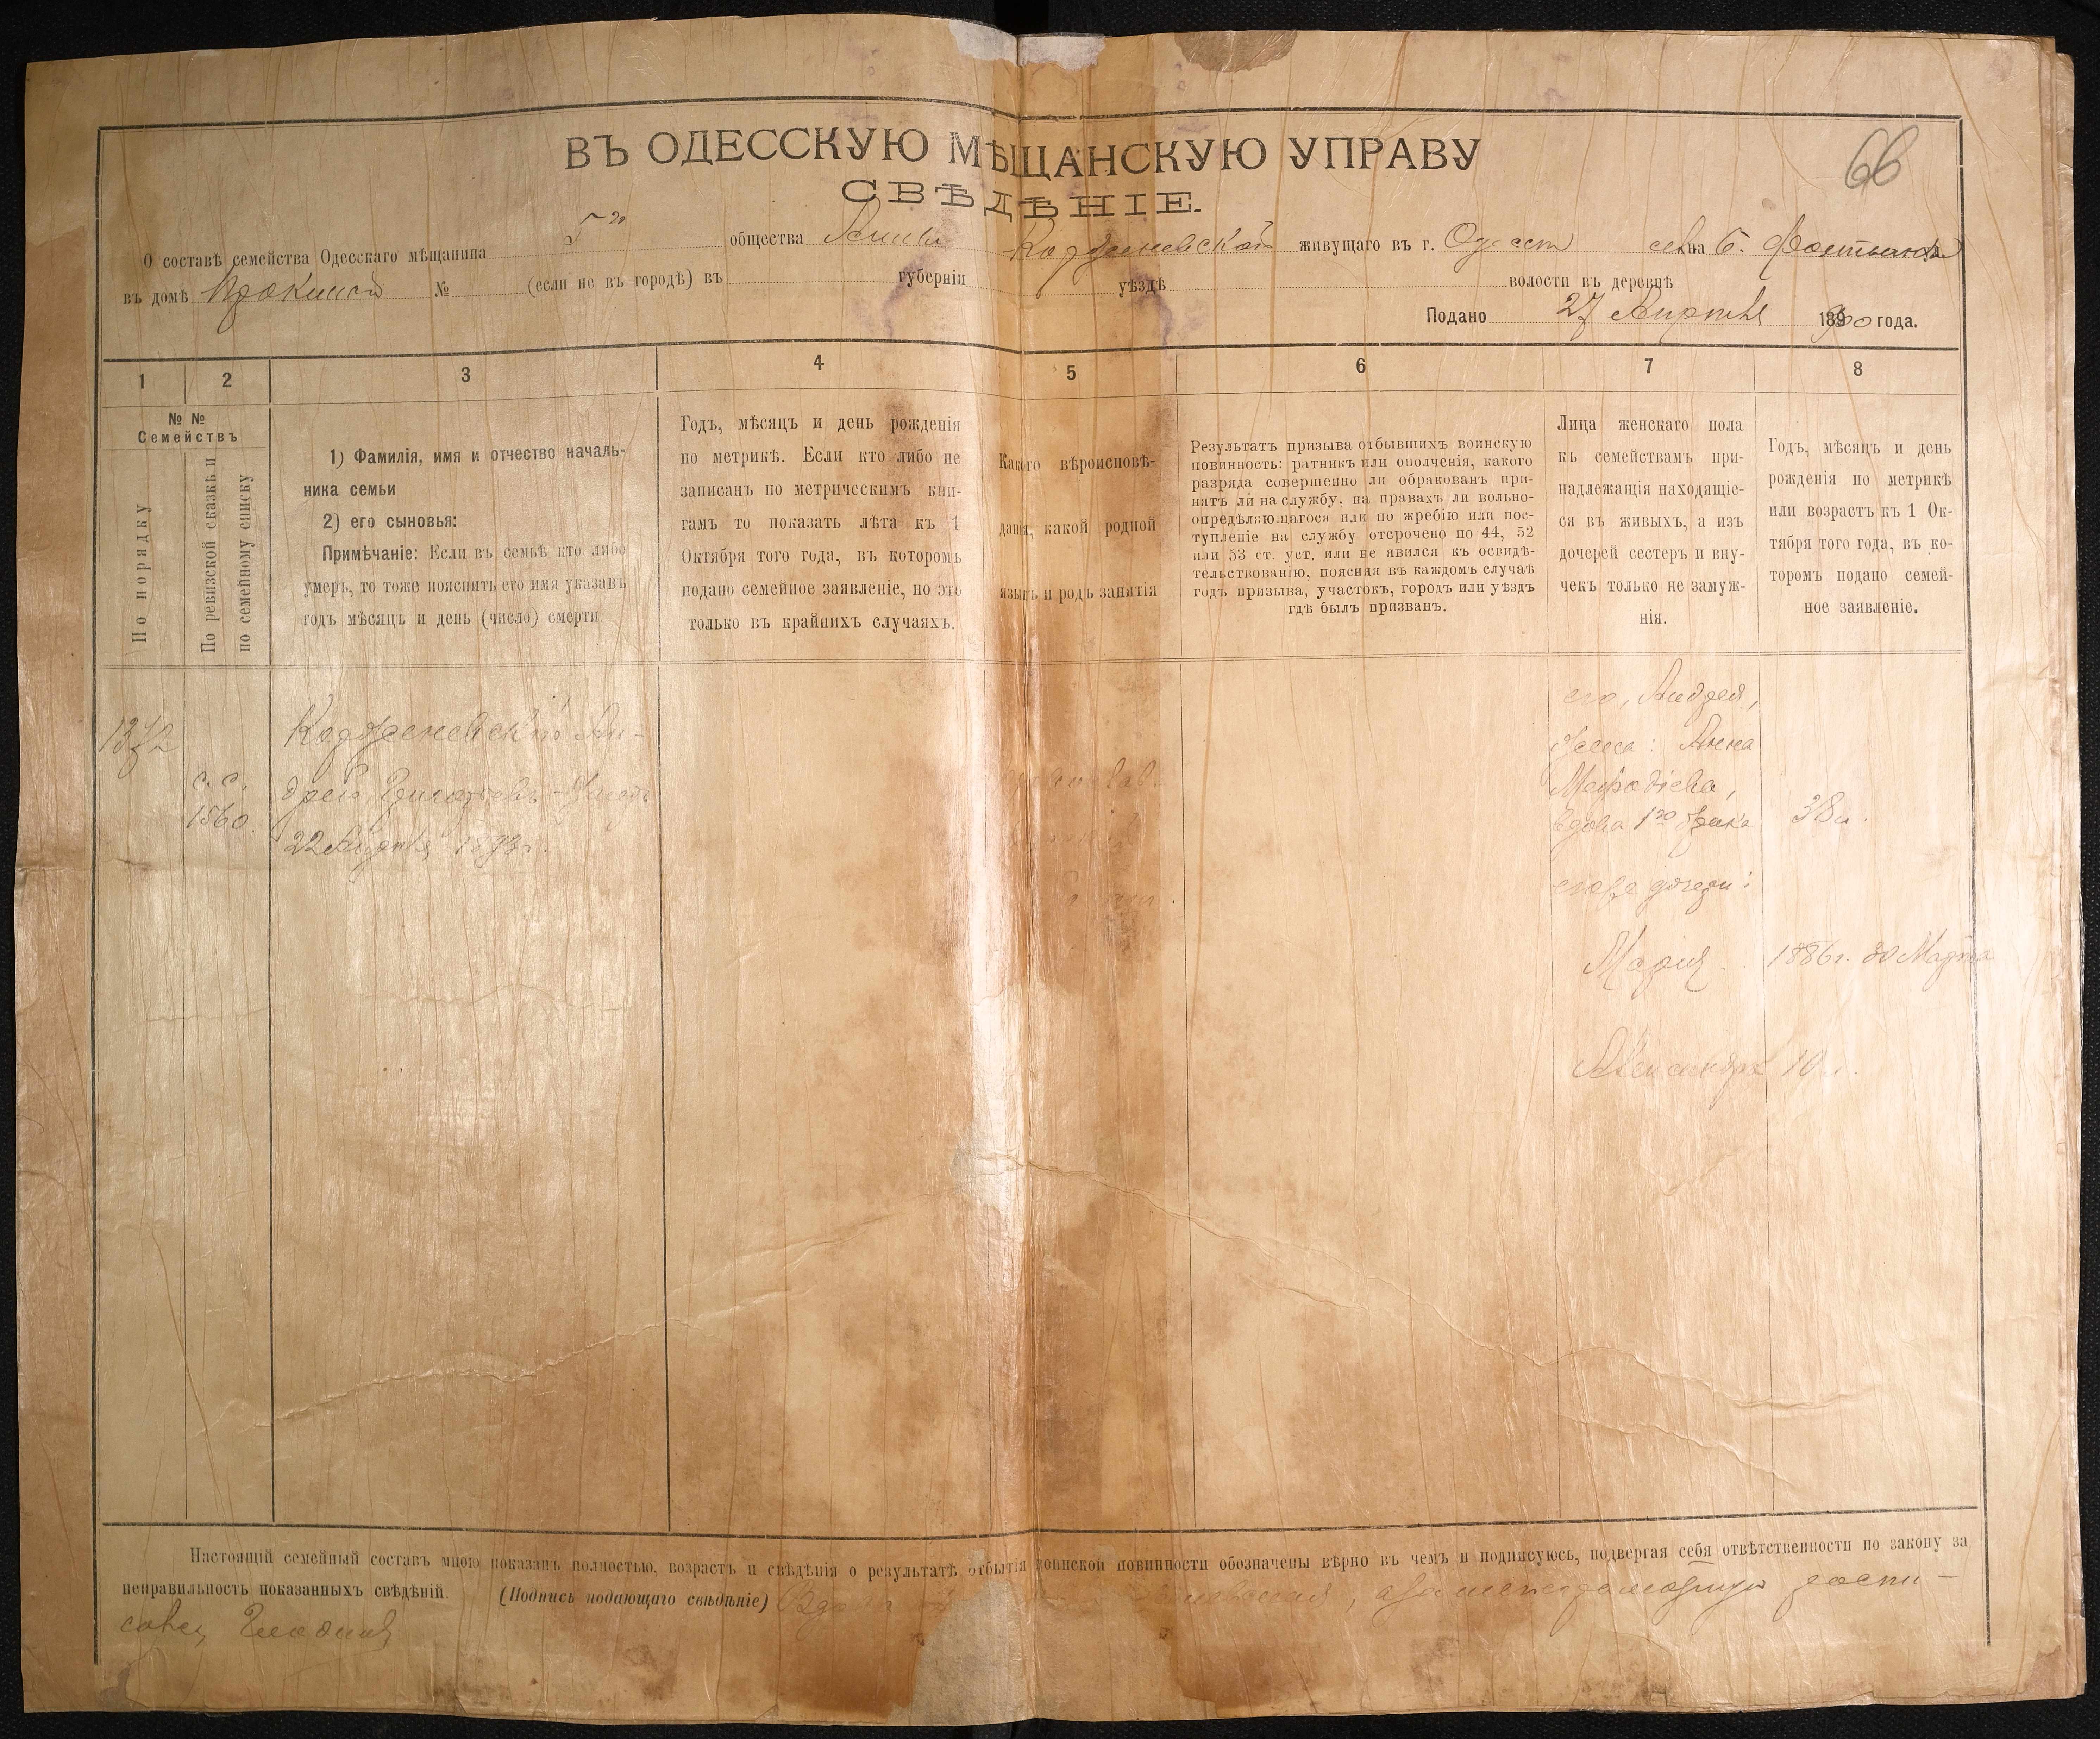 66
ВЪ ОДЕССКУЮ МѢЩАНСКУЮ УПРАВУ
СВѢДѢНІЕ.
О составѣ семейства Одесскаго мѣщанина общества Анны Кордженевской живущаго въ г. Одессѣ на Б. Фонтанѣ
въ домѣ № (если не въ городѣ) въ губерніи уѣздѣ волости въ деревнѣ
Подано 27 Апрѣля 1900 года.
1 2 3 4 5 6 7 8
№ №
Семействъ
По порядку
По ревизской сказкѣ и
по семейному списку
1) Фамилія, имя и отчество началь-
ника семьи
2) его сыновья:
Примѣчаніе: Если въ семьѣ кто либо
умеръ, то тоже пояснить его имя указавъ
годъ мѣсяцъ и день (число) смерти.
Годъ, мѣсяцъ и день рожденія
по метрикѣ. Если кто либо не
записанъ по метрическимъ кни-
гамъ то показать лѣта къ 1
Октября того года, въ которомъ
подано семейное заявленіе, но это
только въ крайнихъ случаяхъ.
Какого вѣроисповѣ-
данія, какой родной
языкъ и родъ занятія
Результатъ призыва отбывшихъ воинскую
повинность: ратникъ или ополченія, какого
разряда совершенно ли обракованъ при-
нятъ ли на службу, на правахъ ли вольно-
опредѣляющагося или по жребію или пос-
тупленіе на службу отсрочено по 44, 52
или 53 ст. уст. или не явился къ освидѣ-
тельствованію, поясняя въ каждомъ случаѣ
годъ призыва, участокъ, городъ или уѣздъ
гдѣ былъ призванъ.
Лица женскаго пола
къ семействамъ при-
надлежащія находящіе-
ся въ живыхъ, а изъ
дочерей сестеръ и вну-
чекъ только не замуж-
нія.
Годъ, мѣсяцъ и день
рожденія по метрикѣ
или возрастъ къ 1 Ок-
тября того года, въ ко-
торомъ подано семей-
ное заявленіе.
1372
с. с.
1560.
Кордженевскій Ан-
дрей Игнатьевъ
22 Апрѣля 1893 г.
его, Андрея,
жена: Анна
Мефодіева,
вдова 1го брака 38 л.
дочери:
Марія 1886 г. 30 Марта
Александра 10 л.
Настоящій семейный составъ мною показанъ полностью, возрастъ и свѣдѣнія о результатѣ отбытія воинской повинности обозначены вѣрно въ чемъ и подписуюсь, подвергая себя отвѣтственности по закону за
неправильность показанныхъ свѣдѣній. (Подпись подающаго свѣдѣніе) Вдова